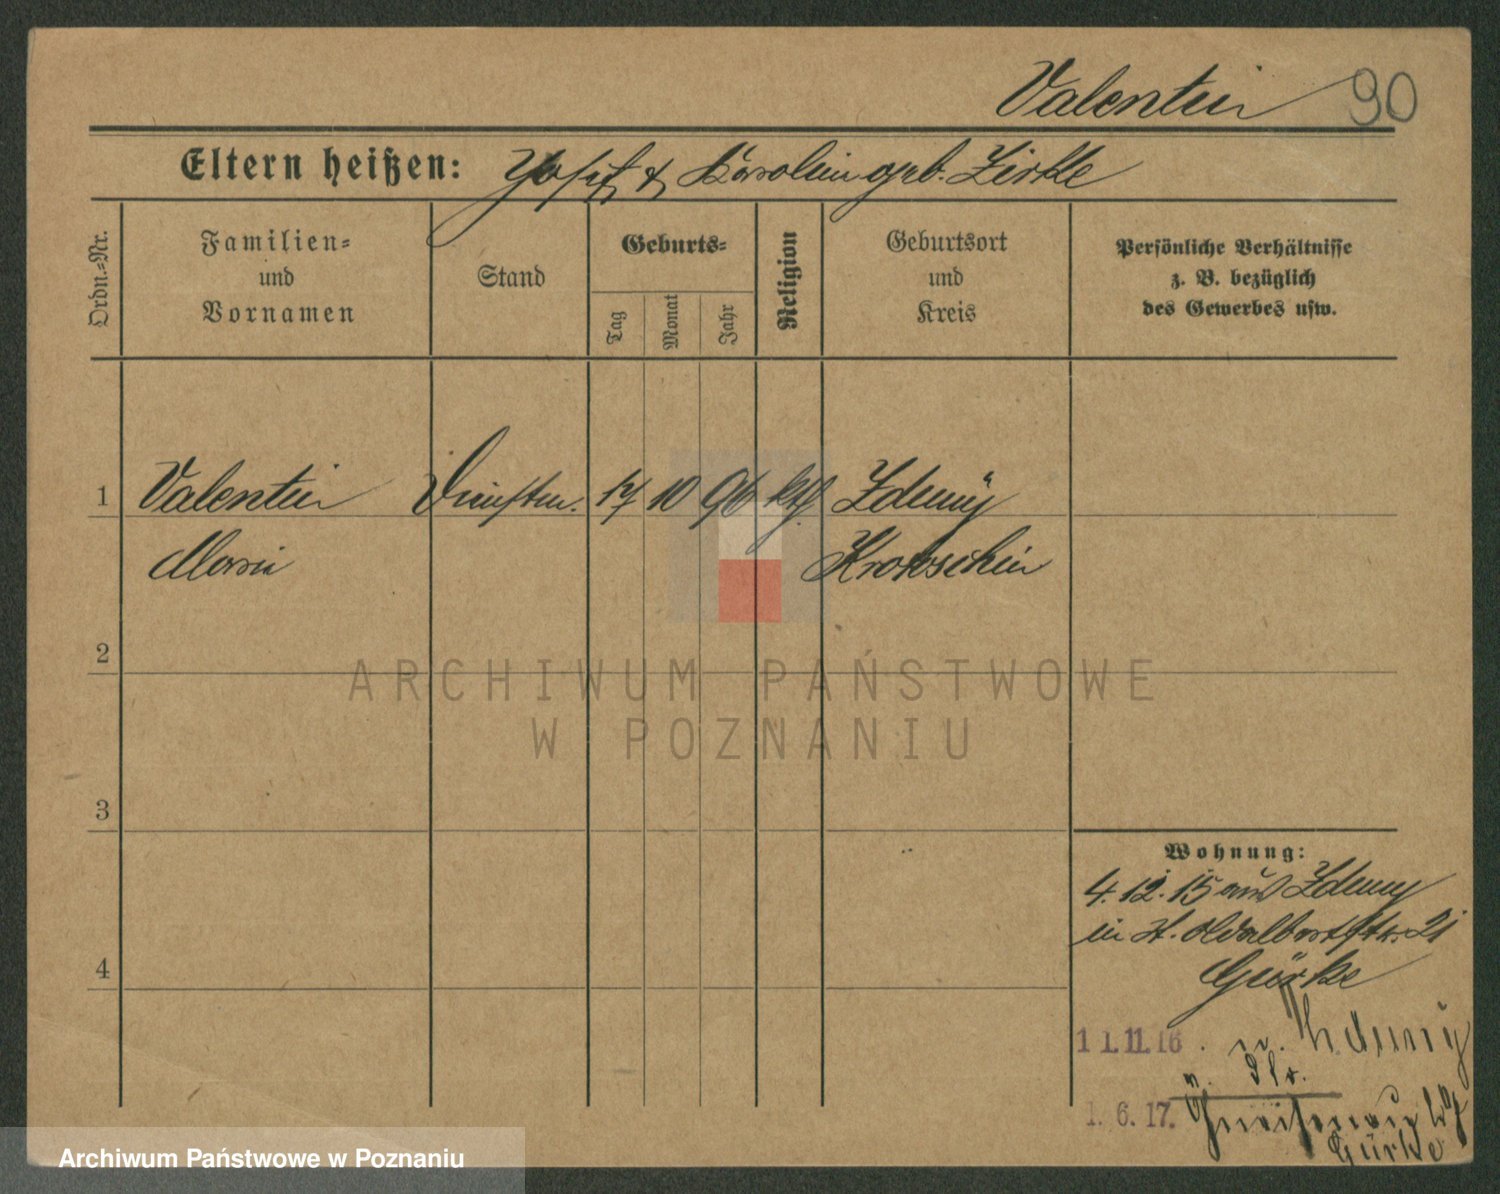 Valentin 90
Eltern heißen: Josef & Karolin geb. Zirkle
Ordn.-Nr.
Familien-
und
Vornamen
Stand
Geburts-
Tag
Monat
Jahr
Religion
Geburtsort
und
Kreis
Persönliche Verhältnisse
z. B. bezüglich
des Gewerbes usw.
1 Valentin Dienstm. 17 10 96 kth Zduny
Maria Krotoschin
2
3
4
Wohnung:
4.12.15 aus Zduny
in St. Adalbertstr. 21
Gürke
11.11.16. n. Zduny
1.6.17. Gneisenau
Gürke
ARCHIWUM PAŃSTWOWE
W POZNANIU
Archiwum Państwowe w Poznaniu